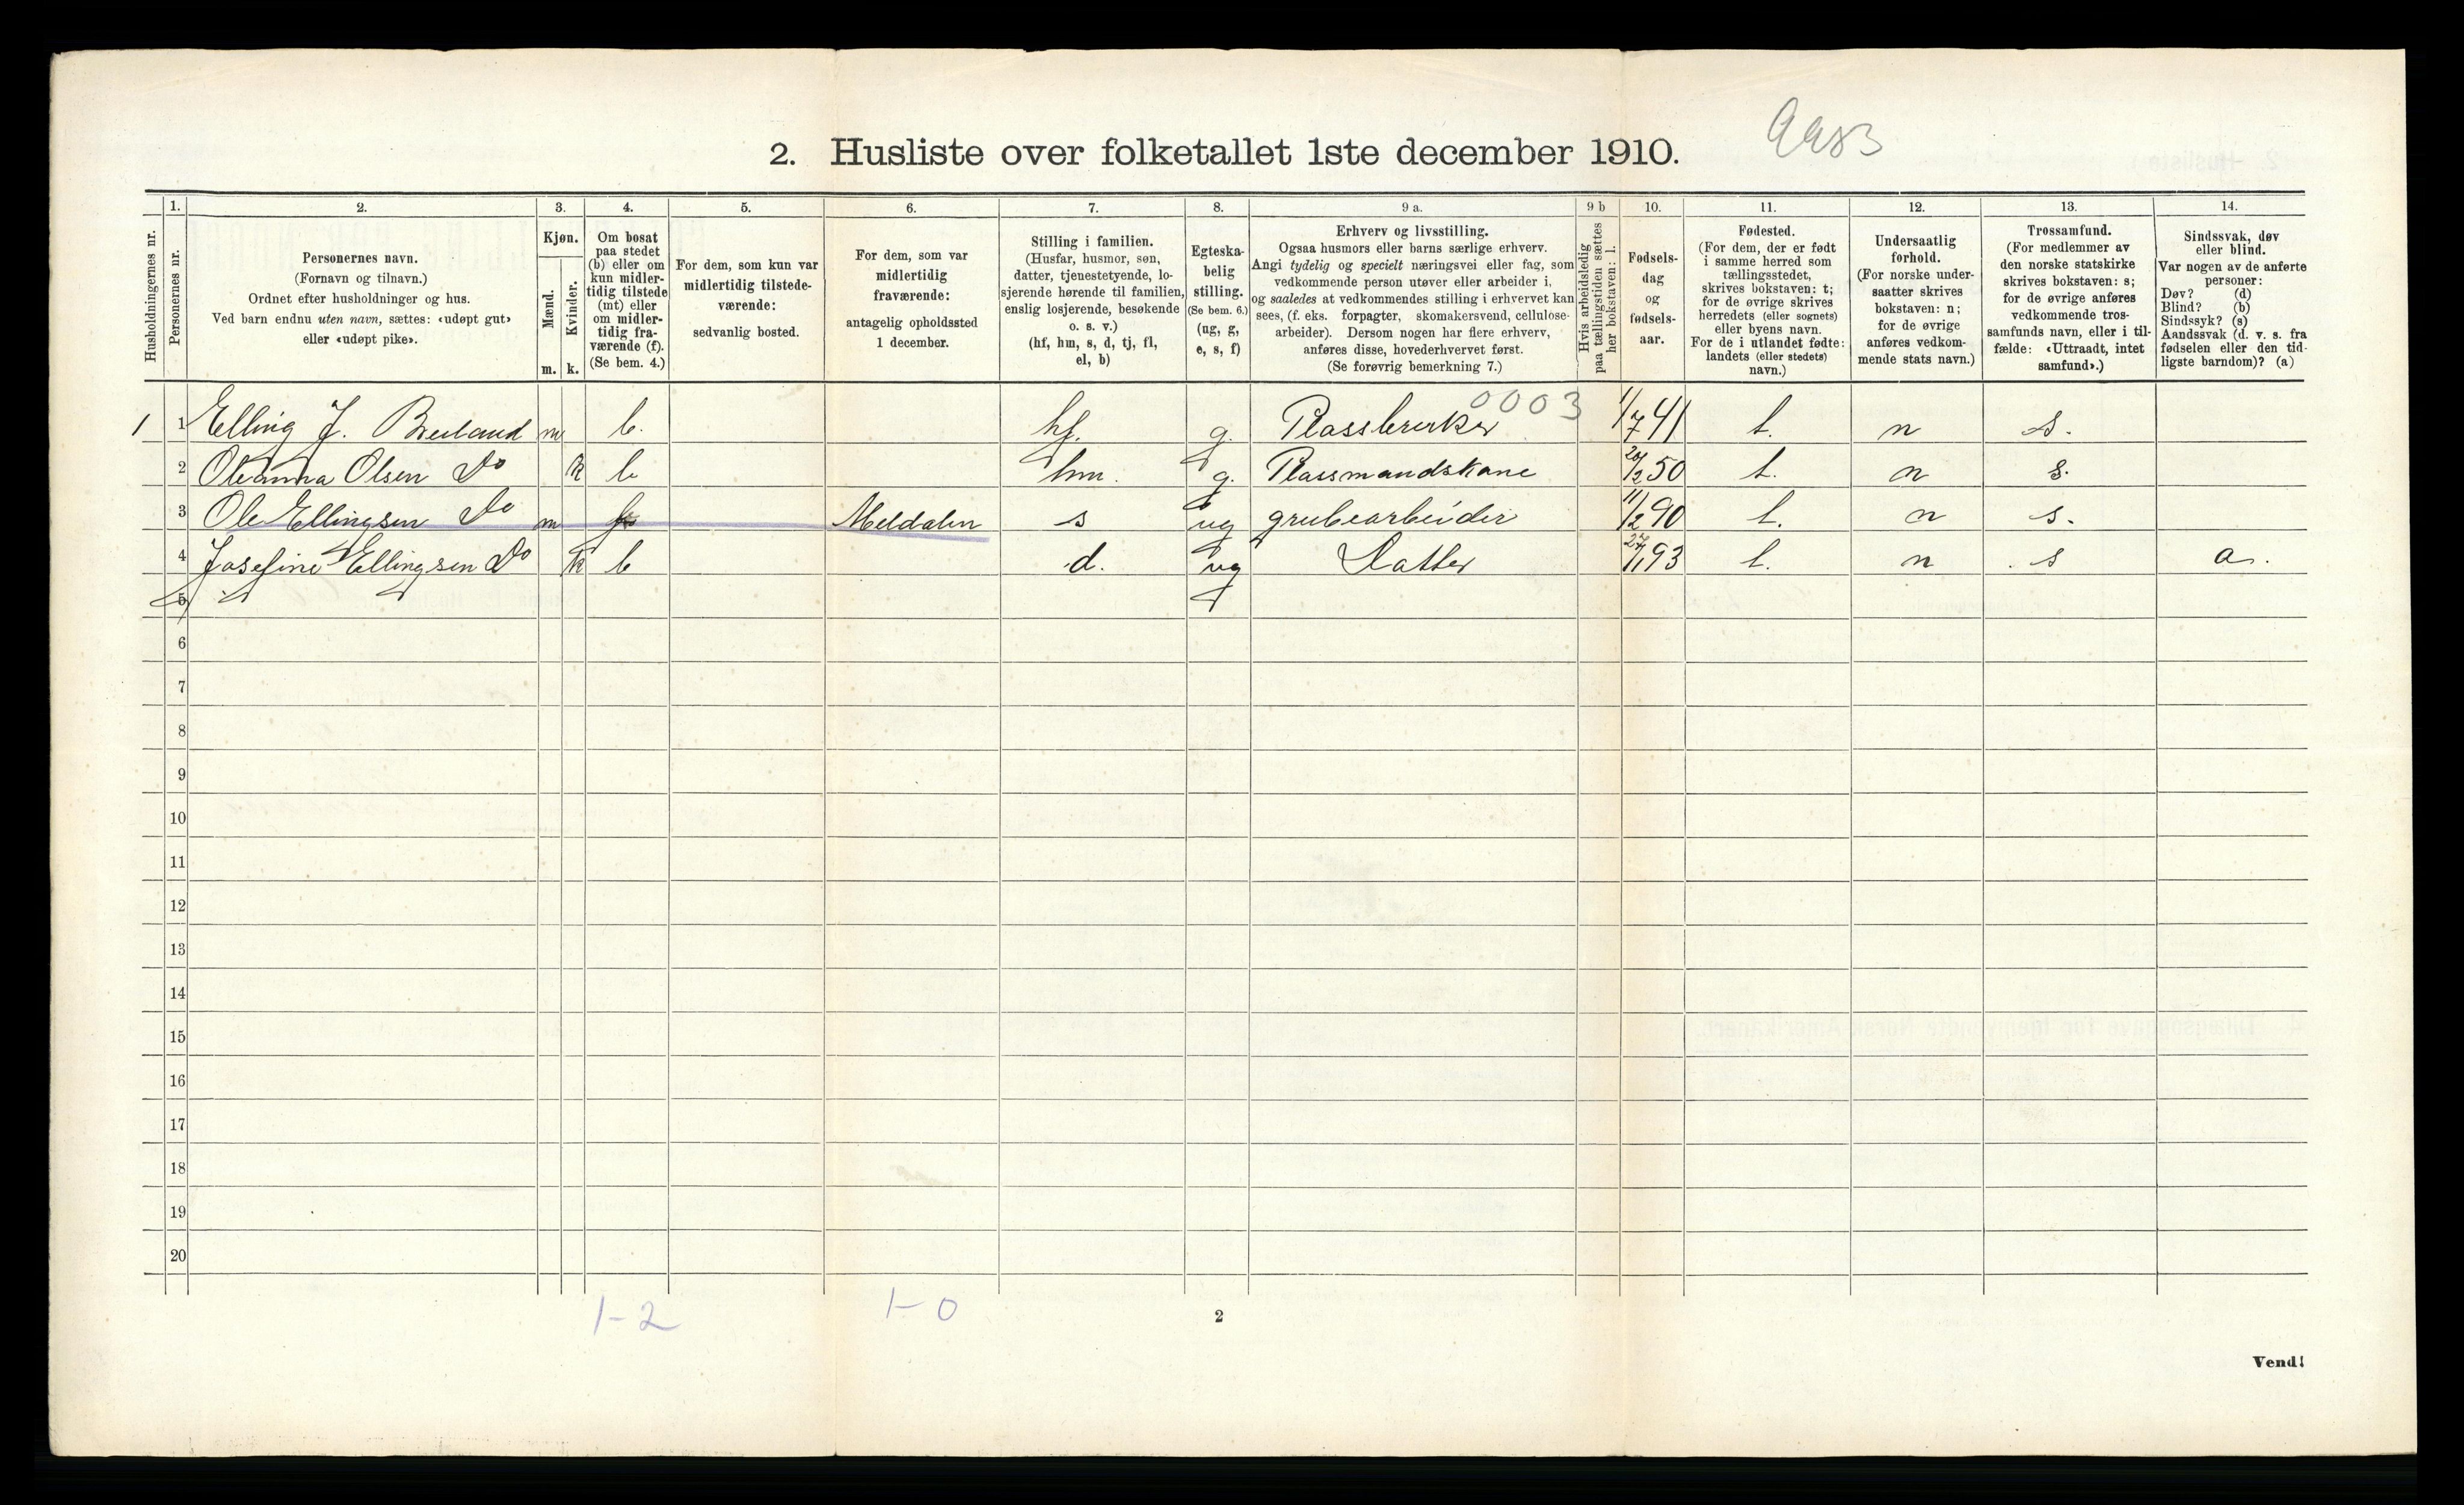 2. Husliste over folketallet 1ste december 1910.
1. 2. 3. 4. 5. 6. 7. 8. 9 a. 9 b 10. 11. 12. 13. 14.
Husholdningernes nr.
Personernes nr.
Personernes navn.
(Fornavn og tilnavn.)
Ordnet efter husholdninger og hus.
Ved barn endnu uten navn, sættes: «udøpt gut»
eller «udøpt pike».
Kjøn.
Mænd.
Kvinder.
m. k.
Om bosat
paa stedet
(b) eller om
kun midler-
tidig tilstede
(mt) eller
om midler-
tidig fra-
værende (f).
(Se bem. 4.)
For dem, som kun var
midlertidig tilstede-
værende:
sedvanlig bosted.
For dem, som var
midlertidig
fraværende:
antagelig opholdssted
1 december.
Stilling i familien.
(Husfar, husmor, søn,
datter, tjenestetyende, lo-
sjerende hørende til familien,
enslig losjerende, besøkende
o. s. v.)
(hf, hm, s, d, tj, fl,
el, b)
Egteska-
belig
stilling.
(Se bem. 6.)
(ug, g,
e, s, f)
Erhverv og livsstilling.
Ogsaa husmors eller barns særlige erhverv.
Angi tydelig og specielt næringsvei eller fag, som
vedkommende person utøver eller arbeider i,
og saaledes at vedkommendes stilling i erhvervet kan
sees, (f. eks. forpagter, skomakersvend, cellulose-
arbeider). Dersom nogen har flere erhverv,
anføres disse, hovederhvervet først.
(Se forøvrig bemerkning 7.)
Hvis arbeidsledig
paa tællingstiden sættes
her bokstaven: l.
Fødsels-
dag
og
fødsels-
aar.
Fødested.
(For dem, der er født
i samme herred som
tællingsstedet,
skrives bokstaven: t;
for de øvrige skrives
herredets (eller sognets)
eller byens navn.
For de i utlandet fødte:
landets (eller stedets)
navn.)
Undersaatlig
forhold.
(For norske under-
saatter skrives
bokstaven: n;
for de øvrige
anføres vedkom-
mende stats navn.)
Trossamfund.
(For medlemmer av
den norske statskirke
skrives bokstaven: s;
for de øvrige anføres
vedkommende tros-
samfunds navn, eller i til-
fælde: «Uttraadt, intet
samfund».)
Sindssvak, døv
eller blind.
Var nogen av de anførte
personer:
Døv? (d)
Blind? (b)
Sindssyk? (s)
Aandssvak (d. v. s. fra
fødselen eller den tid-
ligste barndom)? (a)
0003
1 1 Elling J. Breiland m b. hf. g. Plassbruker 1/7 41 t. n s.
2 Oleanna Olsen Do k b hm. g. Plassmandskone 20/2 50 t. n s.
3 Ole Ellingsen Do m f Meldalen s ug grubearbeider 11/2 90 t. n s.
4 Josefine Ellingsen Do k b d. ug Datter 27/1 93 t. n s a.
5
6
7
8
9
10
11
12
13
14
15
16
17
18
19
20
1-2 1-0
2
Vend!